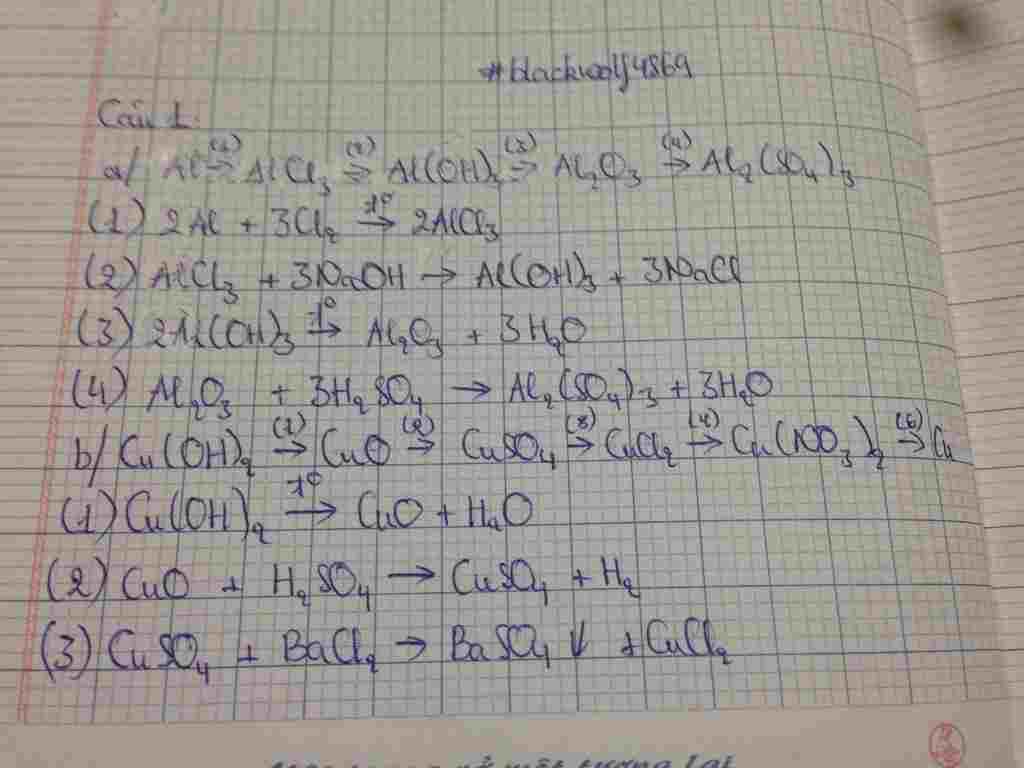 #blackwolf4869
Câu 1:
a/ Al (1)→ AlCl₃ (2)→ Al(OH)₃ (3)→ Al₂O₃ (4)→ Al₂(SO₄)₃
(1) 2Al + 3Cl₂ t°→ 2AlCl₃
(2) AlCl₃ + 3NaOH → Al(OH)₃ + 3NaCl
(3) 2Al(OH)₃ t°→ Al₂O₃ + 3H₂O
(4) Al₂O₃ + 3H₂SO₄ → Al₂(SO₄)₃ + 3H₂O
b/ Cu(OH)₂ (1)→ CuO (2)→ CuSO₄ (3)→ CuCl₂ (4)→ Cu(NO₃)₂ (5)→ Cu
(1) Cu(OH)₂ t°→ CuO + H₂O
(2) CuO + H₂SO₄ → CuSO₄ + H₂
(3) CuSO₄ + BaCl₂ → BaSO₄↓ + CuCl₂
tương lai